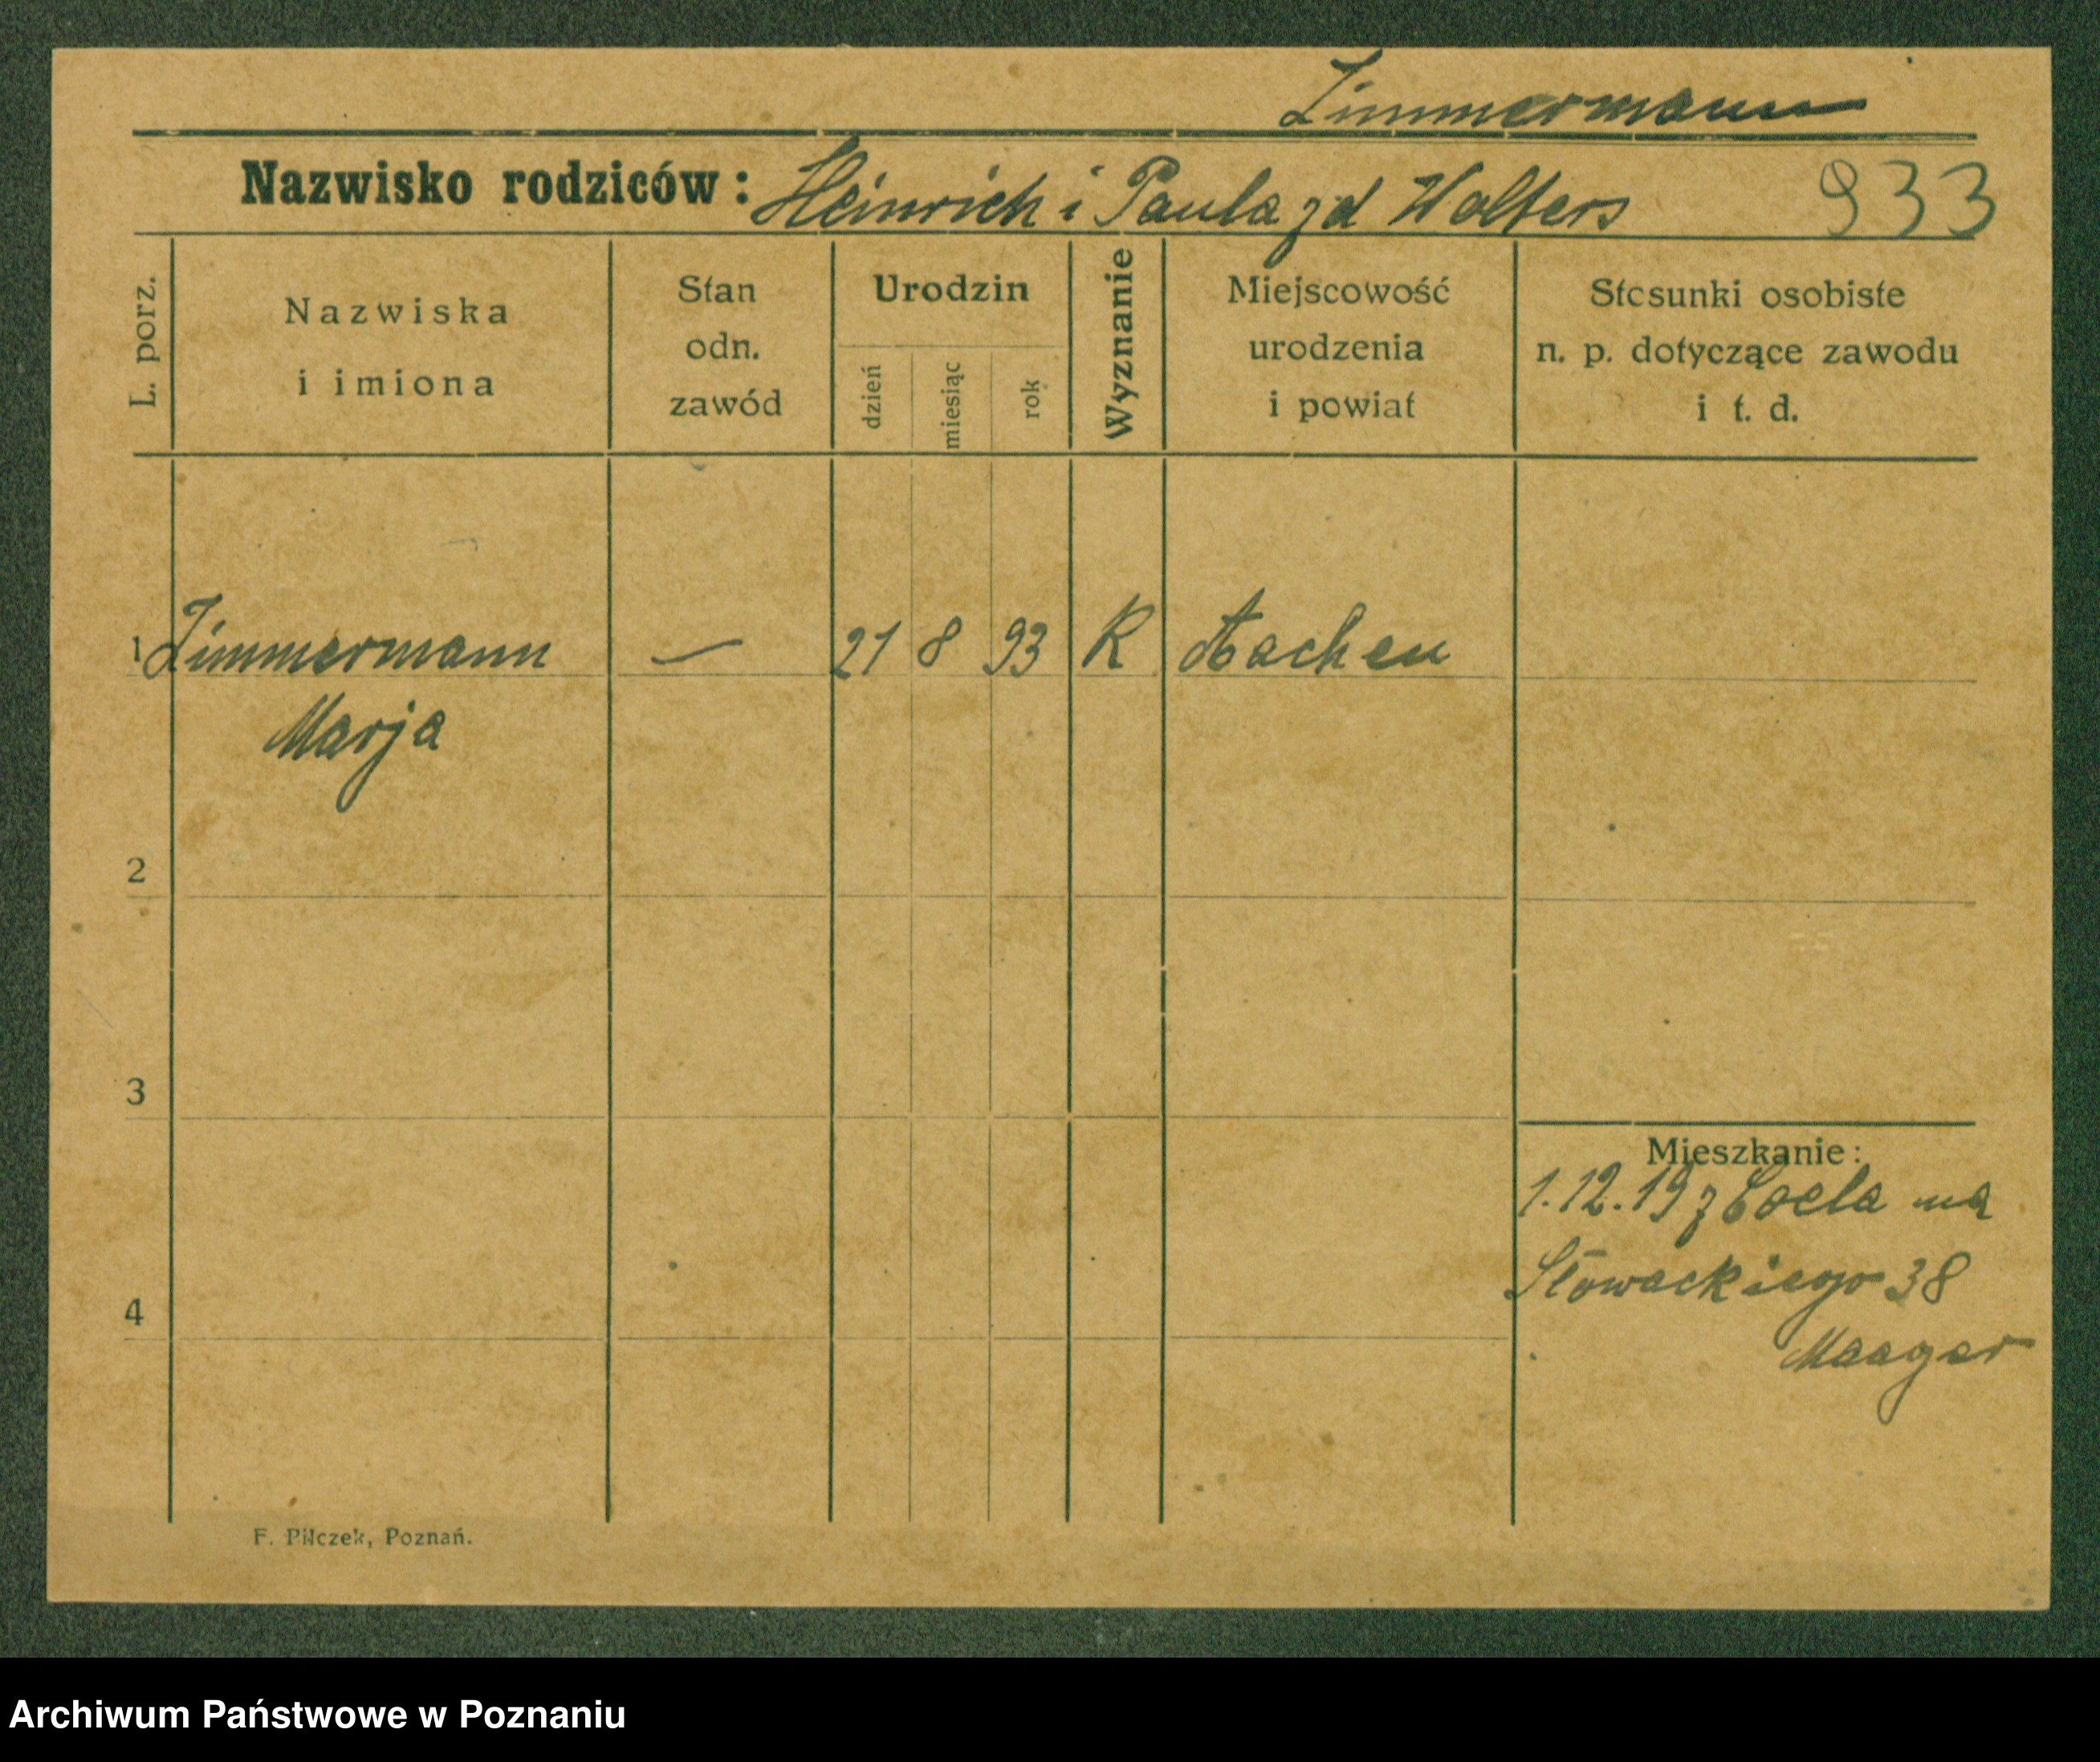 Zimmermann
Nazwisko rodziców: Heinrich i Paula zd Wolters 933
L. porz.
Nazwiska
i imiona
Stan
odn.
zawód
Urodzin
dzień
miesiąc
rok
Wyznanie
Miejscowość
urodzenia
i powiat
Stosunki osobiste
n. p. dotyczące zawodu
i t. d.
1 Zimmermann — 21 8 93 K Aachen
Marja
2
3
Mieszkanie:
1.12.19 z na
Słowackiego 38
4
Maager
F. Pilczek, Poznań.
Archiwum Państwowe w Poznaniu